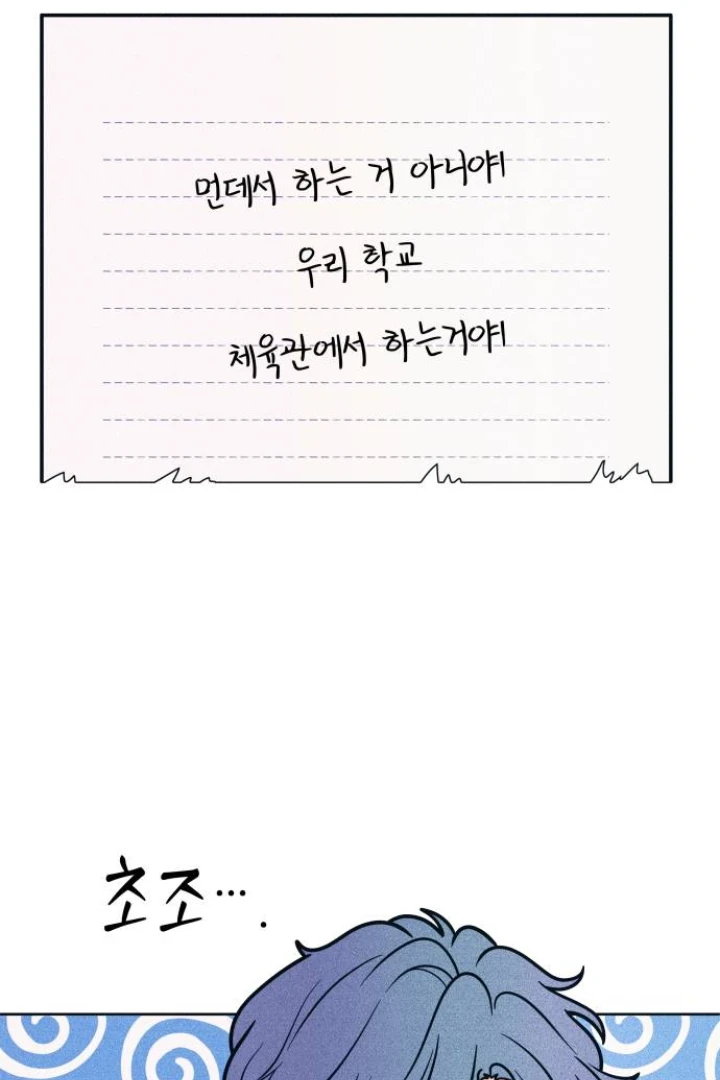 먼데서 하는 거 아니야!
우리 학교
체육관에서 하는거야!
초조….